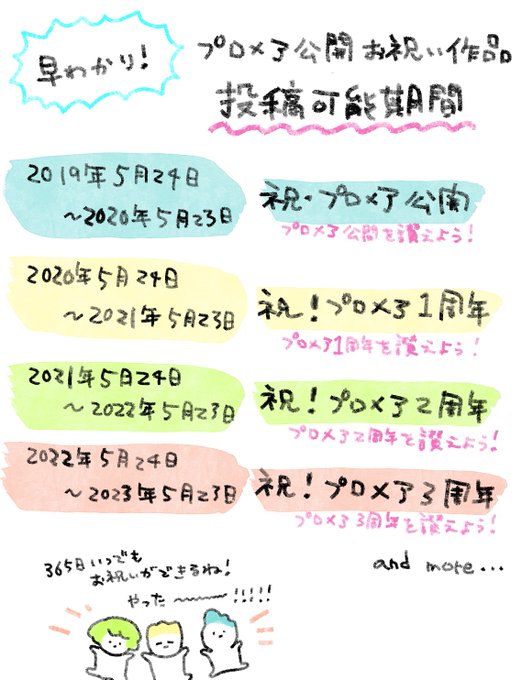 早わかり!
プロメア公開お祝い作品
投稿可能期間
2019年5月24日
～2020年5月23日
祝・プロメア公開
プロメア公開を讃えよう!
2020年5月24日
～2021年5月23日
祝!プロメア1周年
プロメア1周年を讃えよう!
2021年5日24日
～2022年5月23日
祝!プロメア2周年
プロメア2周年を讃えよう!
2022年5月24日
～2023年5月23日
祝!プロメア3周年
プロメア3周年を讃えよう!
and more...
365日いつでも
お祝いができるね!
やった～～～!!!!!